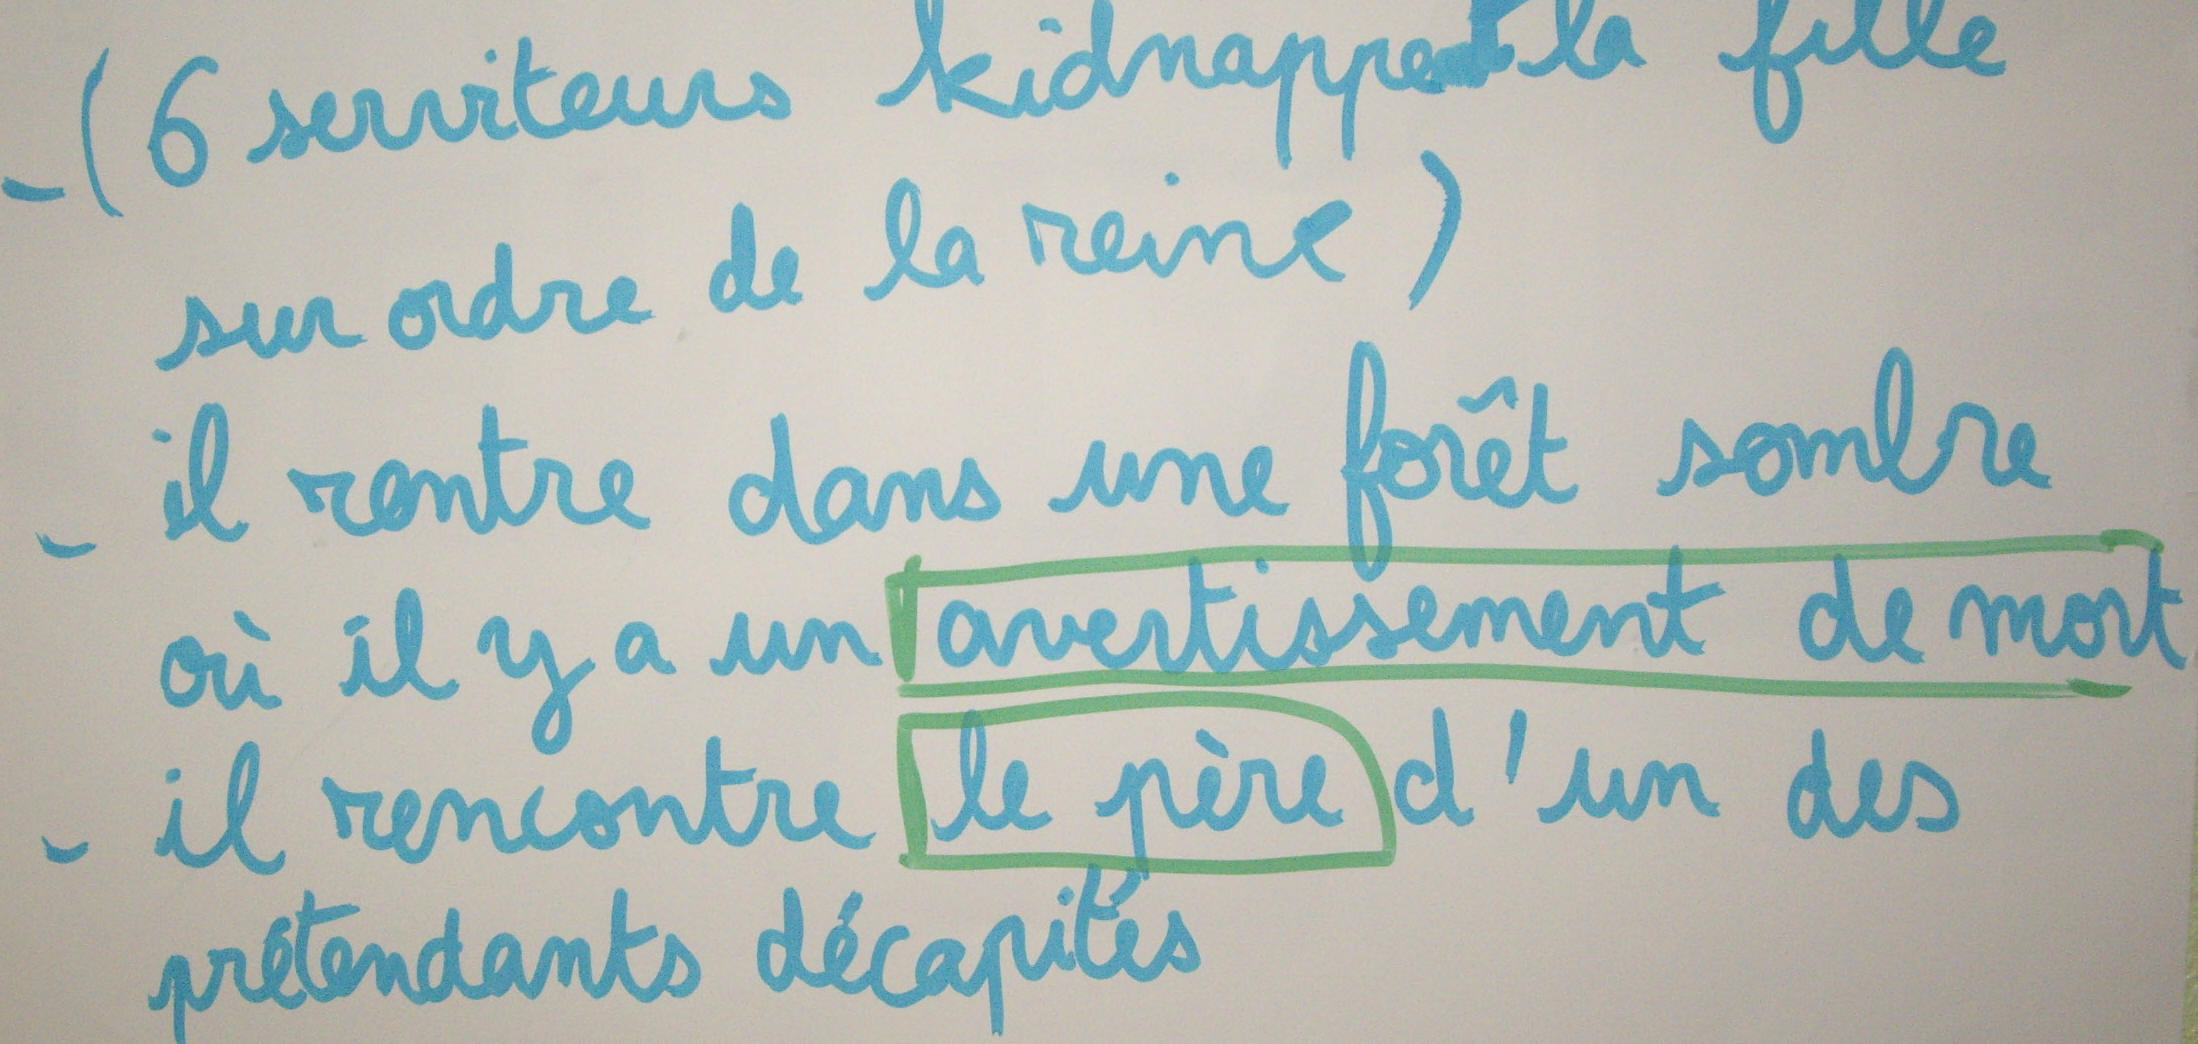 - (6 serviteurs kidnappent la fille
sur ordre de la reine)
- il rentre dans une forêt sombre
où il y a un avertissement de mort
- il rencontre le père d'un des
prétendants décapités